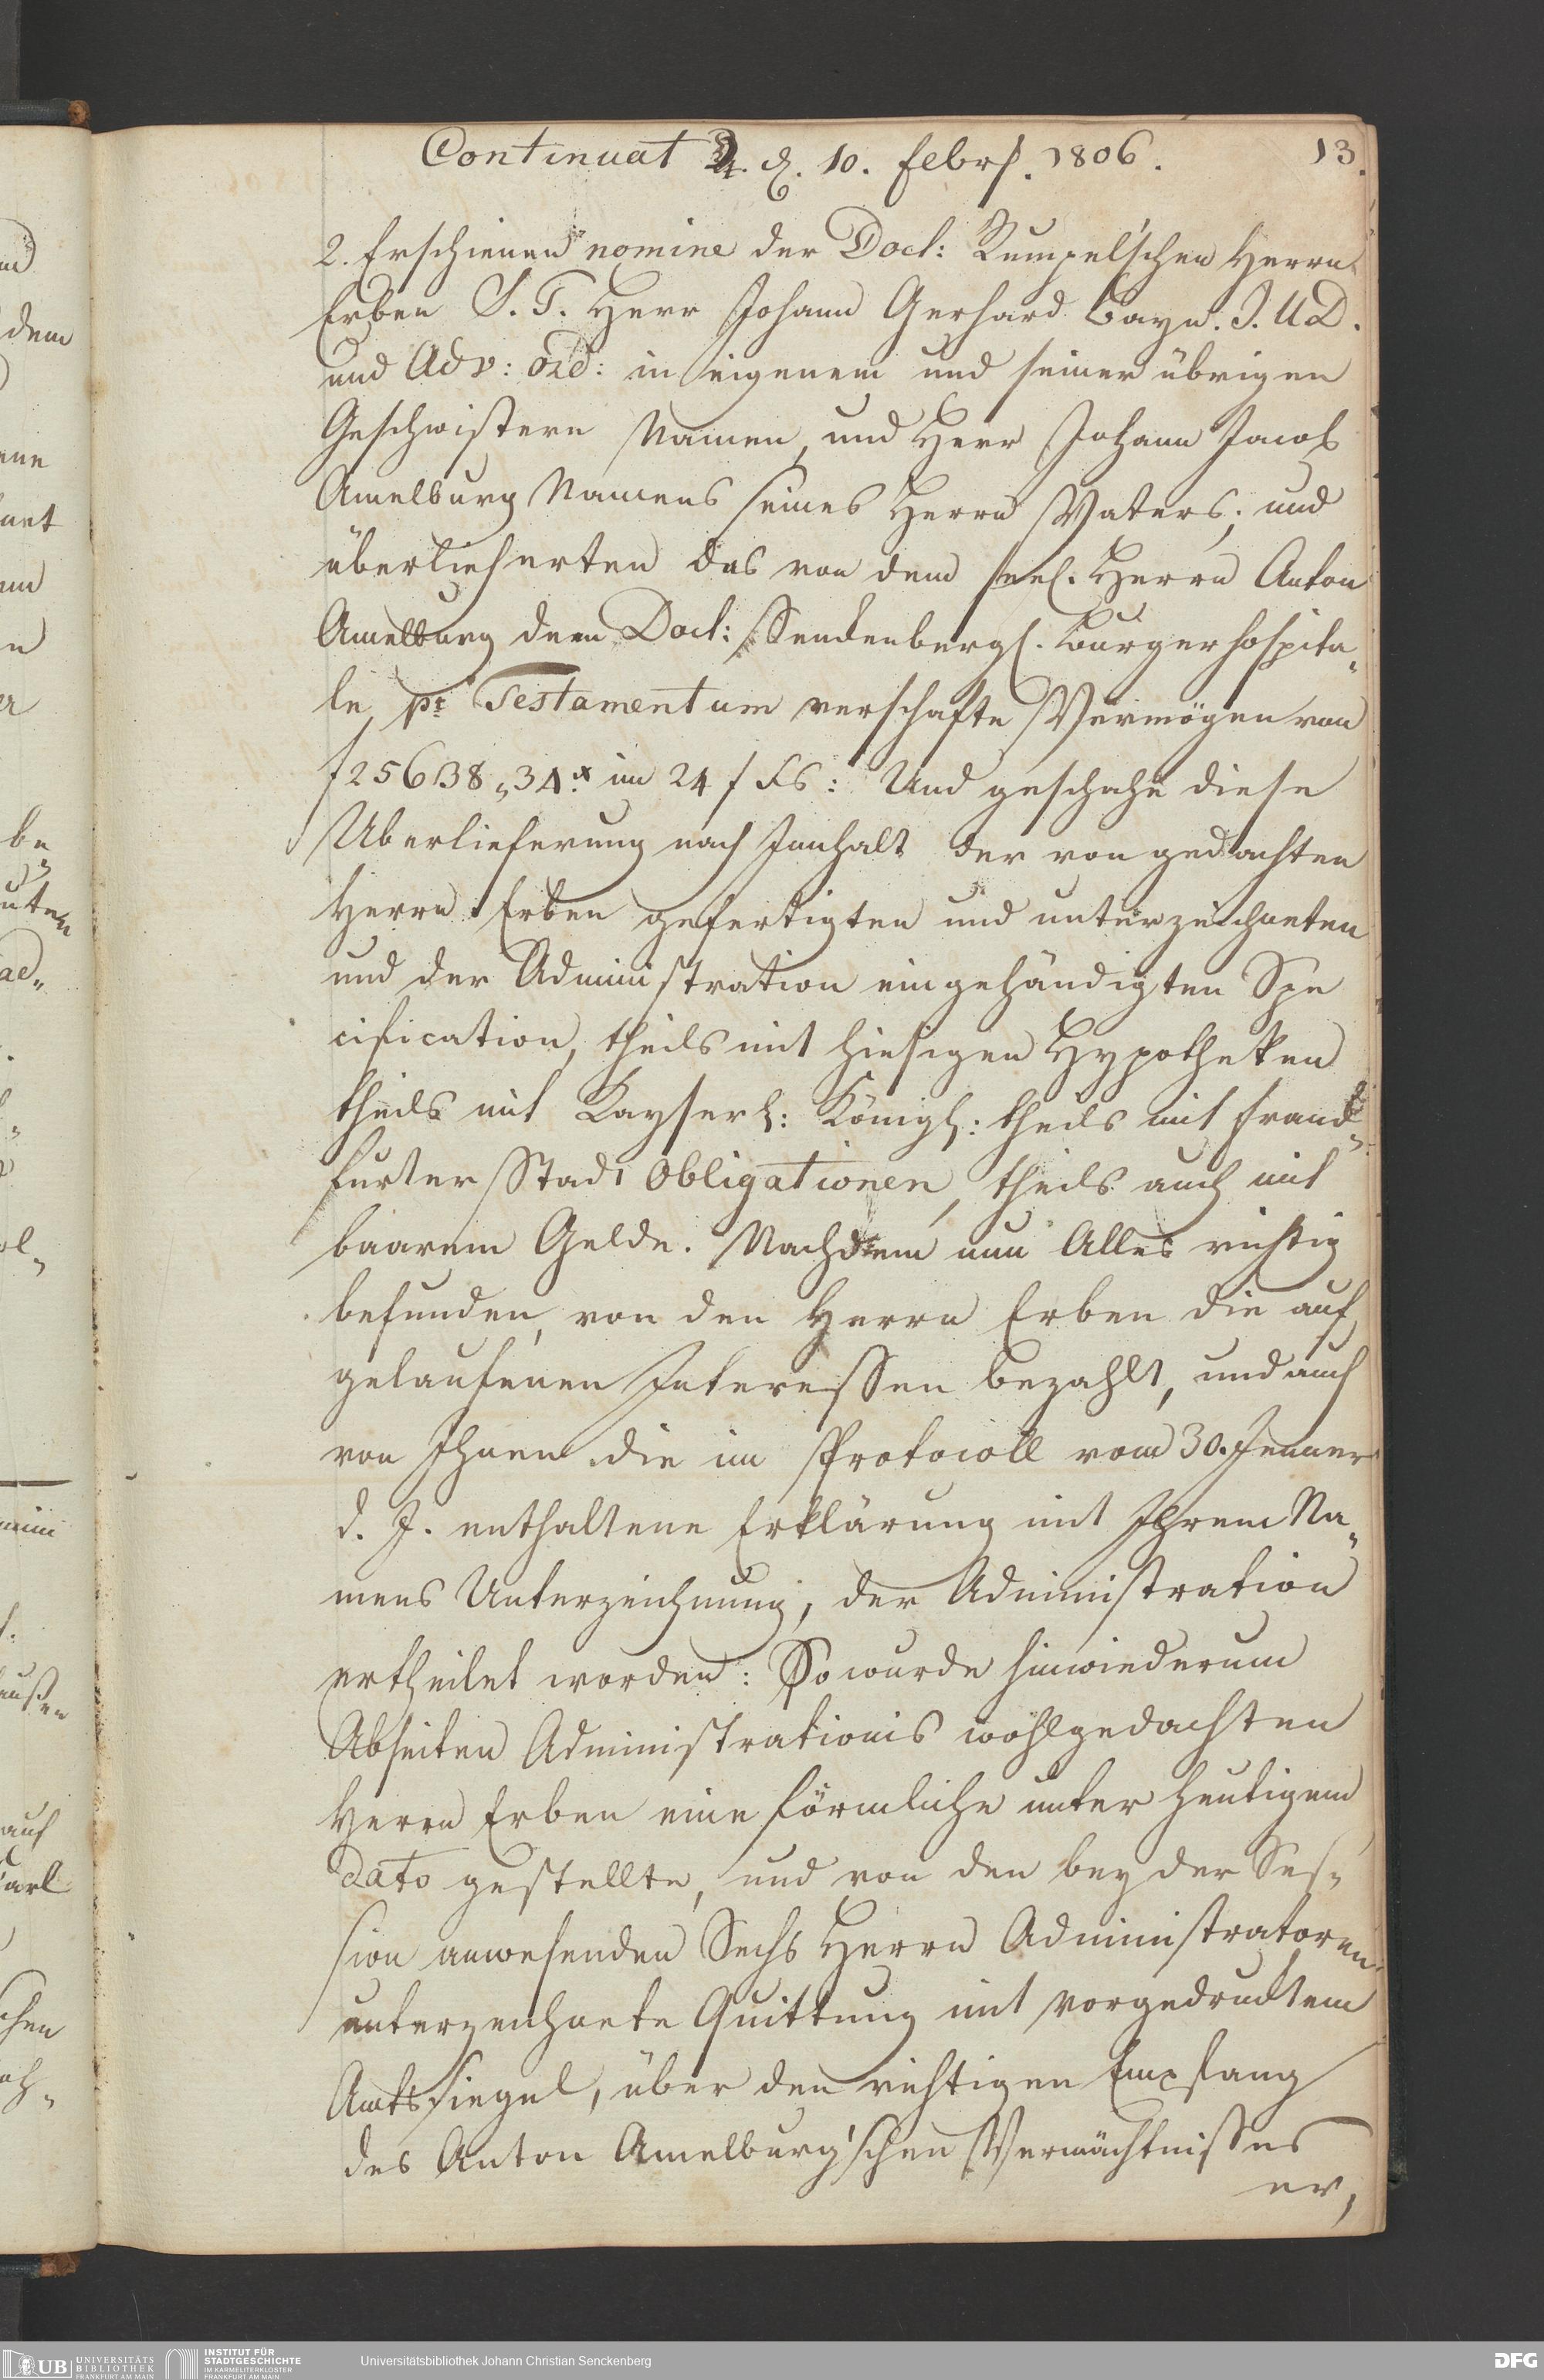 Continuat d. 10. Febr. 1806.
13.
2. Erschienen nomine der Doct: Rumpel'schen Herrn
Erben S. T. Herr Johann Gerhard Bayn. J. U. D.
und Adv: ord: in eigenem und seiner übrigen
Geschwistern Namen, und Herr Johann Jacob
Amelburg Namens seines Herrn Vaters, und
überlieferten das von dem seel. Herrn Anton
Amelburg dem Doct: Senckenbergl. Bürgerhospita„
le, pr Testamentum verschafte Vermögen von
f 25638„34x im 24 f Fs: Und geschahe diese
Uberlieferung nach Innhalt der von gedachten
Herrn Erben gefertigten und unterzeichneten
und der Administration eingehändigten Spe
cification, theils mit hiesigen Hypotheken
theils mit Kayserl: Königl: theils mit Franck„
furter Stadt Obligationen, theils auch mit
baarem Gelde. Nachdem nun Alles richtig
befunden, von den Herrn Erben die auf
gelaufenen Interessen bezahlt, und auch
von Ihnen die im Protocoll vom 30. Jenner
d. J. enthaltene Erklärung mit Ihrem Na„
mens Unterzeichnung, der Administration
ertheilet worden: So wurde hinwiederum
Abseiten Administrationis wohlgedachten
Herrn Erben eine förmliche unter heutigem
dato gestellte, und von den bey der Ses„
sion anwesenden Sechs Herrn Administratoren
unterzeichnete Quittung mit vorgedrucktem
Amtssiegel, über den richtigen Empfang
des Anton Amelburg'schen Vermächtnisses
er,
UB UNIVERSITÄTS
BIBLIOTHEK
FRANKFURT AM MAIN
INSTITUT FÜR
STADTGESCHICHTE
IM KARMELITERKLOSTER
FRANKFURT AM MAIN
Universitätsbibliothek Johann Christian Senckenberg
DFG